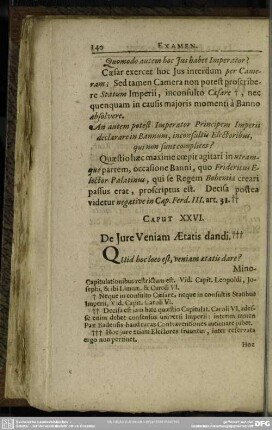 140 EXAMEN.
Quomodo autem hoc Jus habet Imperator?
Cæsar exercet hoc Jus interdum per Came-
ram: Sed tamen Camera non potest proscribe-
re Statum Imperii, inconsulto Cæsare †, nec
quenquam in causis majoris momenti à Banno
absolvere.
An autem potest Imperator Principem Imperii
declarare in Bannum, inconsultis Electoribus,
qui non sunt complices?
Quæstio hæc maxime cœpit agitari in utram-
que partem, occasione Banni, quo Fridericus E-
lector Palatinus, qui se Regem Bohemiæ creari
passus erat, proscriptus est. Decisa postea
videtur negative in Cap. Ferd. III. art. 53. ††
CAPUT XXVI.
De Jure Veniam Ætatis dandi. †††
QUid hoc loco est, veniam ætatis dare?
Mino-
Capitulationibus restrictum est. Vid. Capit. Leopoldi, Jo-
sephi, & ibi Limnæ. & Caroli VI.
† Neque in consulto Cæsare, neque in consultis Statibus
Imperii. Vid. Capit. Caroli VI.
†† Decisa est jam hæc quæstio Capitulat. Caroli VI, ades-
se enim debet consensus universi Imperii: interim tamen
††† Hoc jure etiam Electores fruuntur, inter reservata
ergo non pertinet.
Hoc